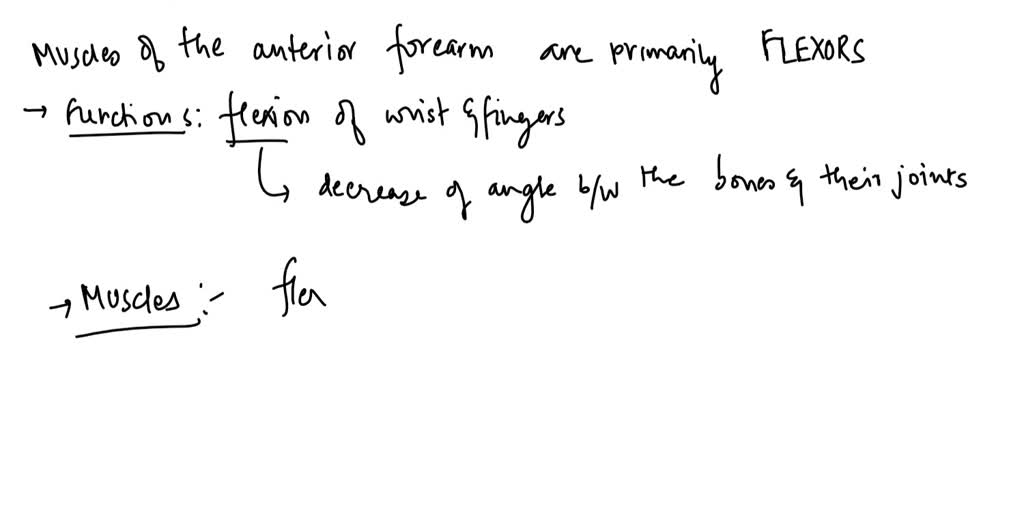 Muscles of the anterior forearm are primarily FLEXORS
→ Functions: flexion of wrist & fingers
↳ decrease of angle b/w the bones & their joints
→ Muscles :- flex